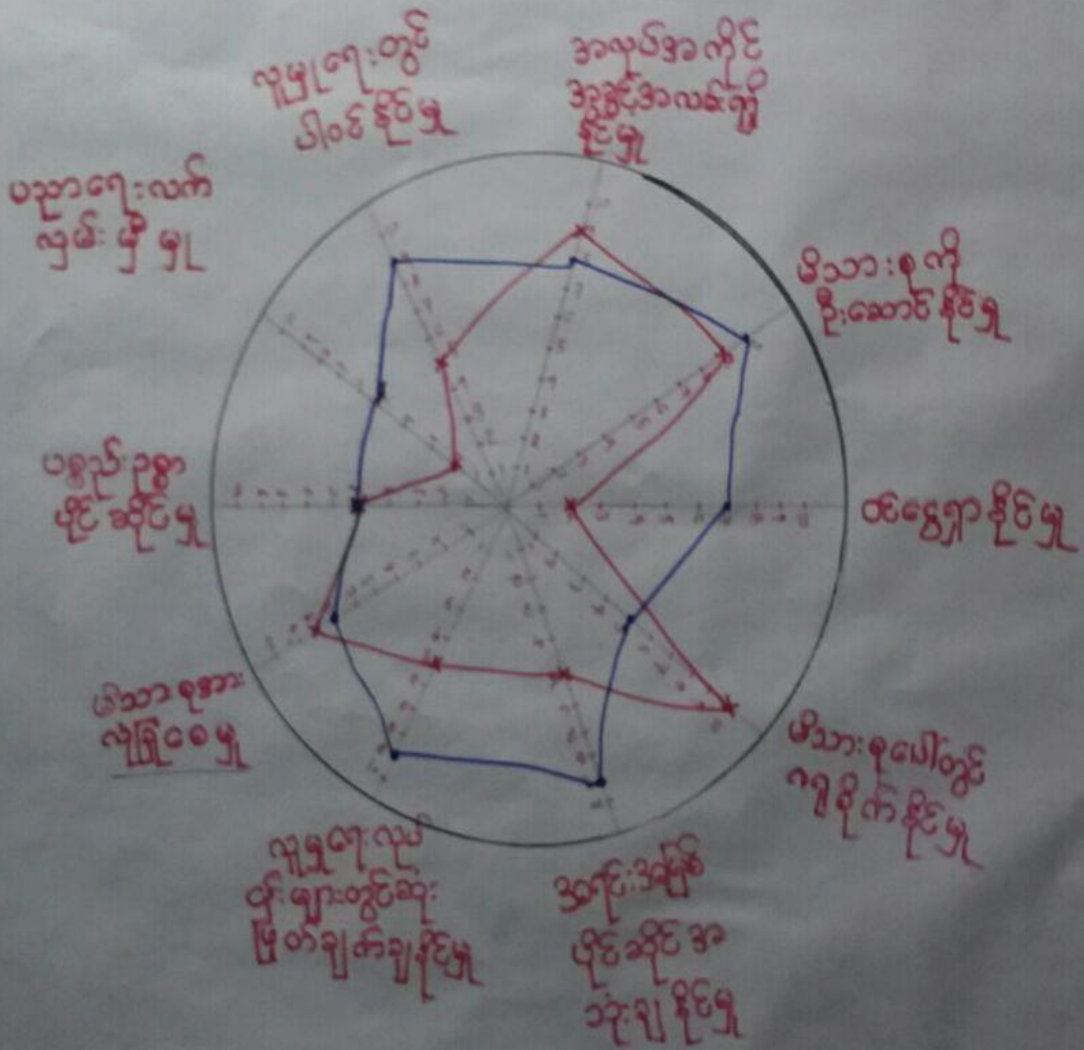 လူမှုရေးတွင်
ပါဝင်နိုင်မှု
အလုပ်အကိုင်
အခွင့်အလမ်းရှိ
နိုင်မှု
မိသားစုကို
ဦးဆောင်နိုင်မှု
ဝင်ငွေရှာနိုင်မှု
မိသားစုပေါ်တွင်
ဂရုစိုက်နိုင်မှု
အရင်းအမြစ်
ပိုင်ဆိုင်အ
သုံးချနိုင်မှု
လူမှုရေးလုပ်
ငန်းများတွင်ဆုံး
ဖြတ်ချက်ချနိုင်မှု
မိသားစုအား
လုံခြုံစေမှု
ပစ္စည်းဥစ္စာ
ပိုင်ဆိုင်မှု
ပညာရေးလက်
လှမ်းမှီမှု